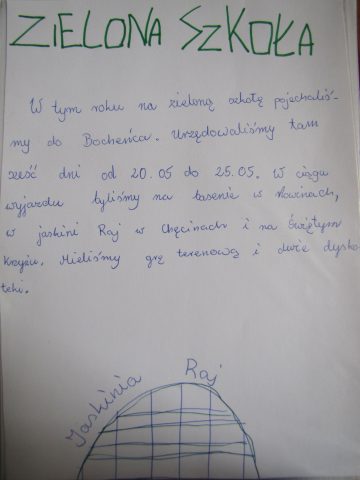 ZIELONA SZKOŁA
W tym roku na zieloną szkołę pojechaliś-
my do Bocheńca. Urzędowaliśmy tam
sześć dni od 20.05 do 25.05. W ciągu
wyjazdu byliśmy na basenie w Nowinach,
w jaskini Raj w Chęcinach i na Świętym
Krzyżu. Mieliśmy grę terenową i dwie dysko
teki.
Jaskinia Raj